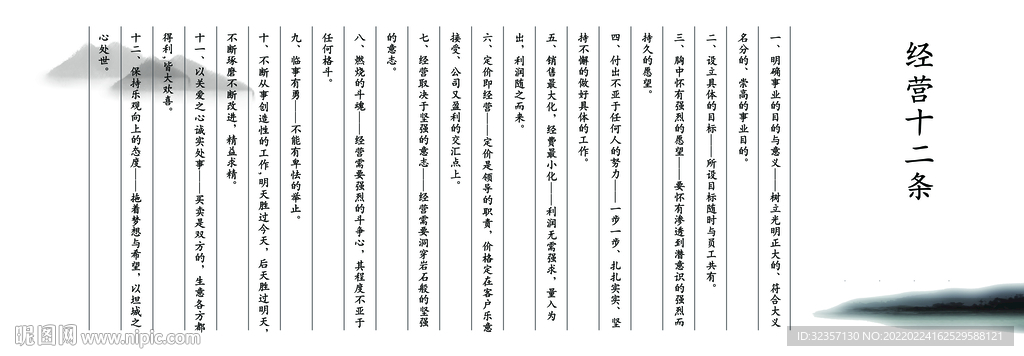 经营十二条
一、明确事业的目的与意义——树立光明正大的、符合大义
名分的、崇高的事业目的。
二、设立具体的目标——所设目标随时与员工共有。
三、胸中怀有强烈的愿望——要怀有渗透到潜意识的强烈而
持久的愿望。
四、付出不亚于任何人的努力——一步一步、扎扎实实、坚
持不懈的做好具体的工作。
五、销售最大化，经费最小化——利润无需强求，量入为
出，利润随之而来。
六、定价即经营——定价是领导的职责，价格定在客户乐意
接受、公司又盈利的交汇点上。
七、经营取决于坚强的意志——经营需要洞穿岩石般的坚强
的意志。
八、燃烧的斗魂——经营需要强烈的斗争心，其程度不亚于
任何格斗。
九、临事有勇——不能有卑怯的举止。
十、不断从事创造性的工作，明天胜过今天，后天胜过明天，
不断琢磨不断改进，精益求精。
十一、以关爱之心诚实处事——买卖是双方的，生意各方都
得利，皆大欢喜。
十二、保持乐观向上的态度——抱着梦想与希望，以坦诚之
心处世。
昵图网
www.nipic.com
ID:32357130 NO:20220224162529588121